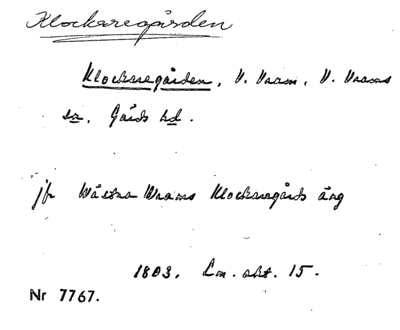 Klockaregården
Klockaregården, V. Vram, V. Vrams
sn. Gärds hd.
jfr Wästra Wrams Klockaregårds äng
1803. Lm. akt. 15.
Nr 7767.